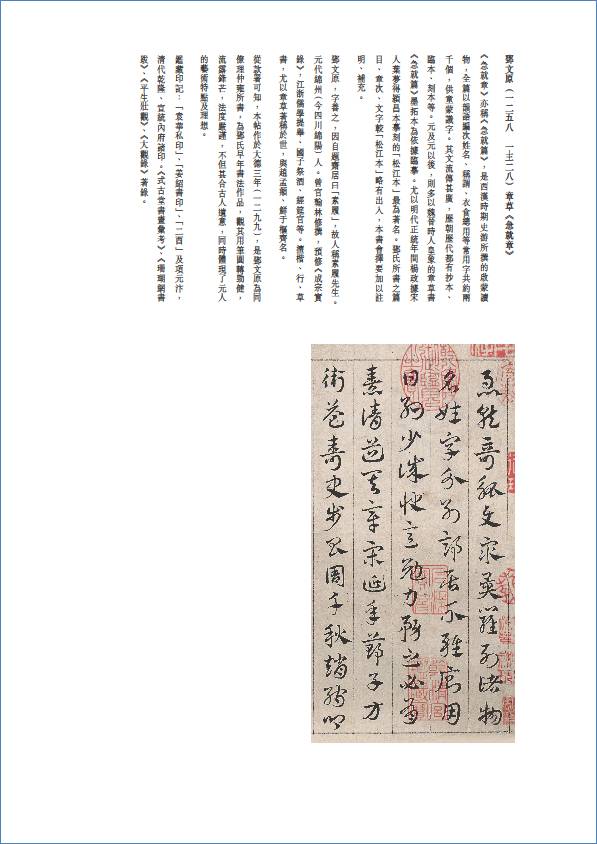 鄧文原(一二五八 一三二八)章草《急就章》
《急就章》亦稱《急就篇》,是西漢時期史游所撰的啟蒙讀
物,全篇以韻語編次姓名、稱謂、衣食總用等常用字共約兩
千個,供童蒙識字。其文流傳甚廣,歷朝歷代都有抄本、
臨本、刻本等。元及元以後,則多以魏晉時人皇象的章草書
《急就篇》墨拓本為依據臨摹。尤以明代正統年間楊政據宋
人葉夢得潁昌本摹刻的「松江本」最為著名。鄧氏所書之篇
目、章次、文字較「松江本」略有出入,本書會擇要加以註
明、補充。
鄧文原,字善之,因自題齋居曰「素履」,故人稱素履先生。
元代綿州(今四川綿陽)人。曾官翰林修撰,預修《成宗實
錄》,江浙儒學提舉、國子祭酒、經筵官等。擅楷、行、草
書,尤以章草著稱於世,與趙孟頫、鮮于樞齊名。
從款署可知,本帖作於大德三年(一二九九),是鄧文原為同
僚理仲雍所書,為鄧氏早年書法作品,觀其用筆圓轉勁健,
流露鋒芒,法度嚴謹,不但甚合古人遺意,同時體現了元人
的藝術特點及理想。
鑑藏印記:「袁華私印」、「姜紹書印」、「二酉」及項元汴,
清代乾隆、宣統內府諸印。《式古堂書畫彙考》、《珊瑚網書
跋》、《平生壯觀》、《大觀錄》著錄。
急就奇觚與眾異羅列諸物
名姓字分別部居不雜廁用
日約少誠快意勉力務之必有
憙請道其章宋延年鄭子方
衛益壽史步昌周千秋趙孺卿